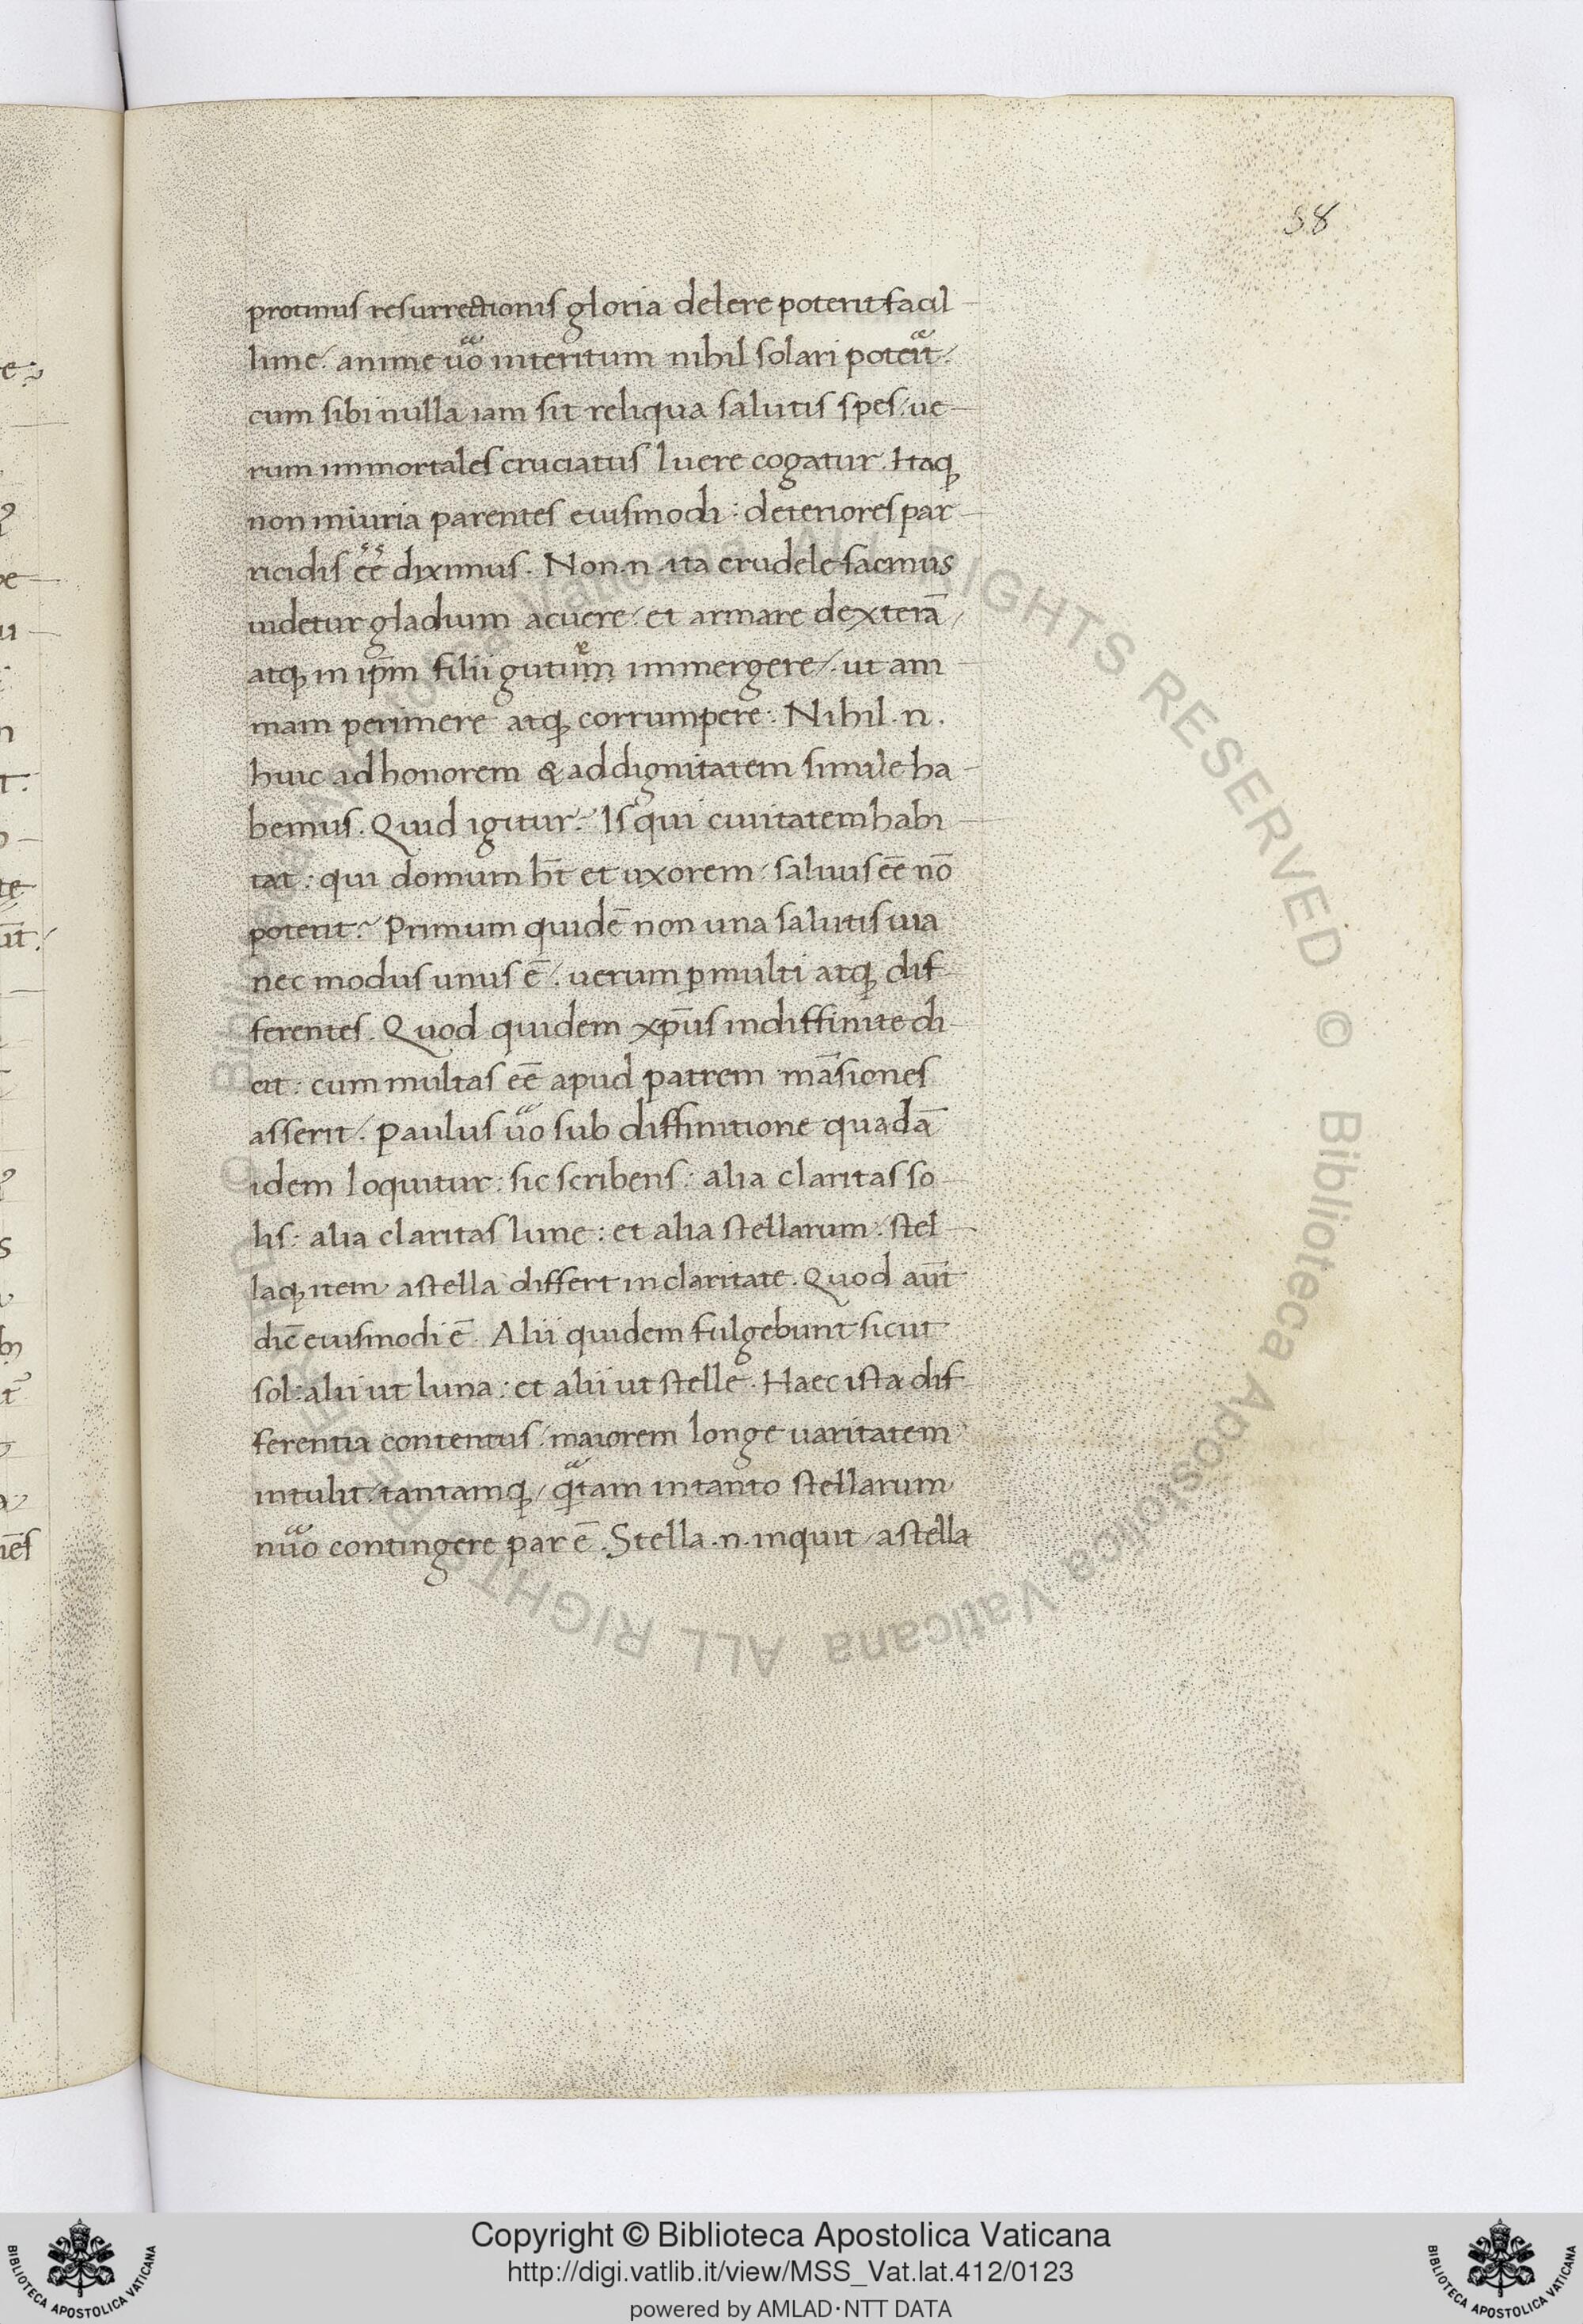 58
protinus resurrectionis gloria delere poterit facil
lime. anime ũo interitum nihil solari poteit.
cum sibi nulla iam sit reliqua salutis spes. ue
rum immortales cruciatus luere cogatur. Itaq
non iniuria parentes eiusmodi: deteriores par
ricidis eē diximus. Non .n. ita crudele facinus
uidetur gladium acuere. et armare dexterā
atq in ipm̄ filii gutur̃ immergere. ut ani
mam perimere atq corrumpere. Nihil .n.
huic ad honorem & ad dignitatem simile ha
bemus. Quid igitur. Is qui ciuitatem habi
tat: qui domum ht̄ et uxorem. saluus eē nō
poterit. Primum quidē non una salutis uia
nec modus unus ē. uerum ꝑmulti atq dif
ferentes. Quod quidem xp̄us indiffinite di
cit: cum multas eē apud patrem māsiones
asserit. Paulus ũo sub diffinitione quadā
idem loquitur: sic scribens: alia claritas so
lis: alia claritas lune: et alia stellarum. stel
laq item a stella differt in claritate. Quod aut̄
dic̄ eiusmodi ē. Alii quidem fulgebunt sicut
sol: alii ut luna: et alii ut stelle. Haec ista dif
ferentia contentus. maiorem longe uaritatem
intulit. tantamq, qtam in tanto stellarum
nũo contingere par ē. Stella .n. inquit a stella
e
ūt.
iēs
© Biblioteca Apostolica Vaticana ALL RIGHTS RESERVED © Biblioteca Apostolica Vaticana ALL RIGHTS RESERVED
Copyright © Biblioteca Apostolica Vaticana
http://digi.vatlib.it/view/MSS_Vat.lat.412/0123
powered by AMLAD·NTT DATA
BIBLIOTECA APOSTOLICA VATICANA
BIBLIOTECA APOSTOLICA VATICANA